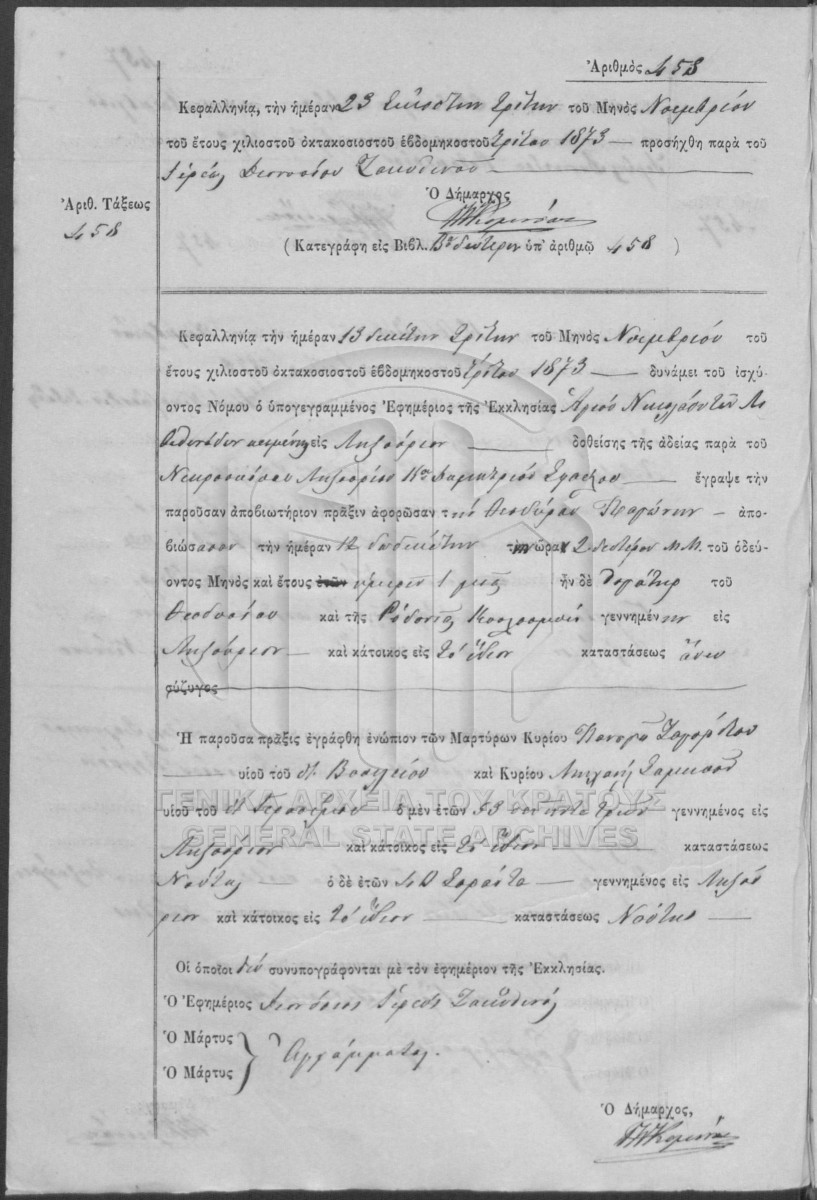 Ἀριθμὸς 458
Κεφαλληνία, τὴν ἡμέραν 23 Εἰκοστὴν Τρίτην τοῦ Μηνὸς Νοεμβρίου
τοῦ ἔτους χιλιοστοῦ ὀκτακοσιοστοῦ ἑβδομηκοστοῦ Τρίτου 1873 — προσήχθη παρὰ τοῦ
Ἱερέως Διονυσίου Ζακυθινοῦ
Ὁ Δήμαρχος
Ἀριθ. Τάξεως
458
( Κατεγράφη εἰς Βιβλ. Βον δεύτερον ὑπ' ἀριθμῷ 458 )
Κεφαλληνίᾳ τὴν ἡμέραν 13 δεκάτην Τρίτην τοῦ Μηνὸς Νοεμβρίου τοῦ
ἔτους χιλιοστοῦ ὀκτακοσιοστοῦ ἑβδομηκοστοῦ Τρίτου 1873 — δυνάμει τοῦ ἰσχύ
οντος Νόμου ὁ ὑπογεγραμμένος Ἐφημέριος τῆς Ἐκκλησίας Ἁγίου Νικολάου τῶν
κειμένης εἰς Ληξούριον — δοθείσης τῆς ἀδείας παρὰ τοῦ
Νεκροσκόπου Ληξουρίου Κου Δημητρίου — ἔγραψε τὴν
παροῦσαν ἀποβιωτήριον πρᾶξιν ἀφορῶσαν τὴν Θεοδώραν — ἀπο-
βιώσασαν τὴν ἡμέραν 12 δωδεκάτην τὴν ὥραν 2 δευτέραν Μ.Μ. τοῦ ὁδεύ-
οντος Μηνὸς καὶ ἔτους ἐτῶν ἡμερῶν 1 μιᾶς ἦν δὲ θυγάτηρ τοῦ
Θεοδοσίου καὶ τῆς γεννημένην εἰς
Ληξούριον — καὶ κάτοικος εἰς τὸ ἴδιον καταστάσεως ἄνευ
σύζυγος
Ἡ παροῦσα πρᾶξις ἐγράφθη ἐνώπιον τῶν Μαρτύρων Κυρίου Παναγῆ
υἱοῦ τοῦ Βασιλείου καὶ Κυρίου
ΓΕΝΙΚΑ ΑΡΧΕΙΑ ΤΟΥ ΚΡΑΤΟΥΣ
υἱοῦ τοῦ Γερασίμου ὁ μὲν ἐτῶν 53 πενῆντα τριῶν γεννημένος εἰς
GENERAL STATE ARCHIVES
Ληξούριον καὶ κάτοικος εἰς τὸ ἴδιον — καταστάσεως
Ναύτης — ὁ δὲ ἐτῶν 40 Σαράντα — γεννημένος εἰς Ληξού
ριον καὶ κάτοικος εἰς τὸ ἴδιον — καταστάσεως Ναύτης —
Οἱ ὁποῖοι δὲν συνυπογράφονται μὲ τὸν ἐφημέριον τῆς Ἐκκλησίας.
Ὁ Ἐφημέριος Διονύσιος Ἱερεὺς Ζακυθινός
Ὁ Μάρτυς
Ἀγράμματοι.
Ὁ Μάρτυς
Ὁ Δήμαρχος,